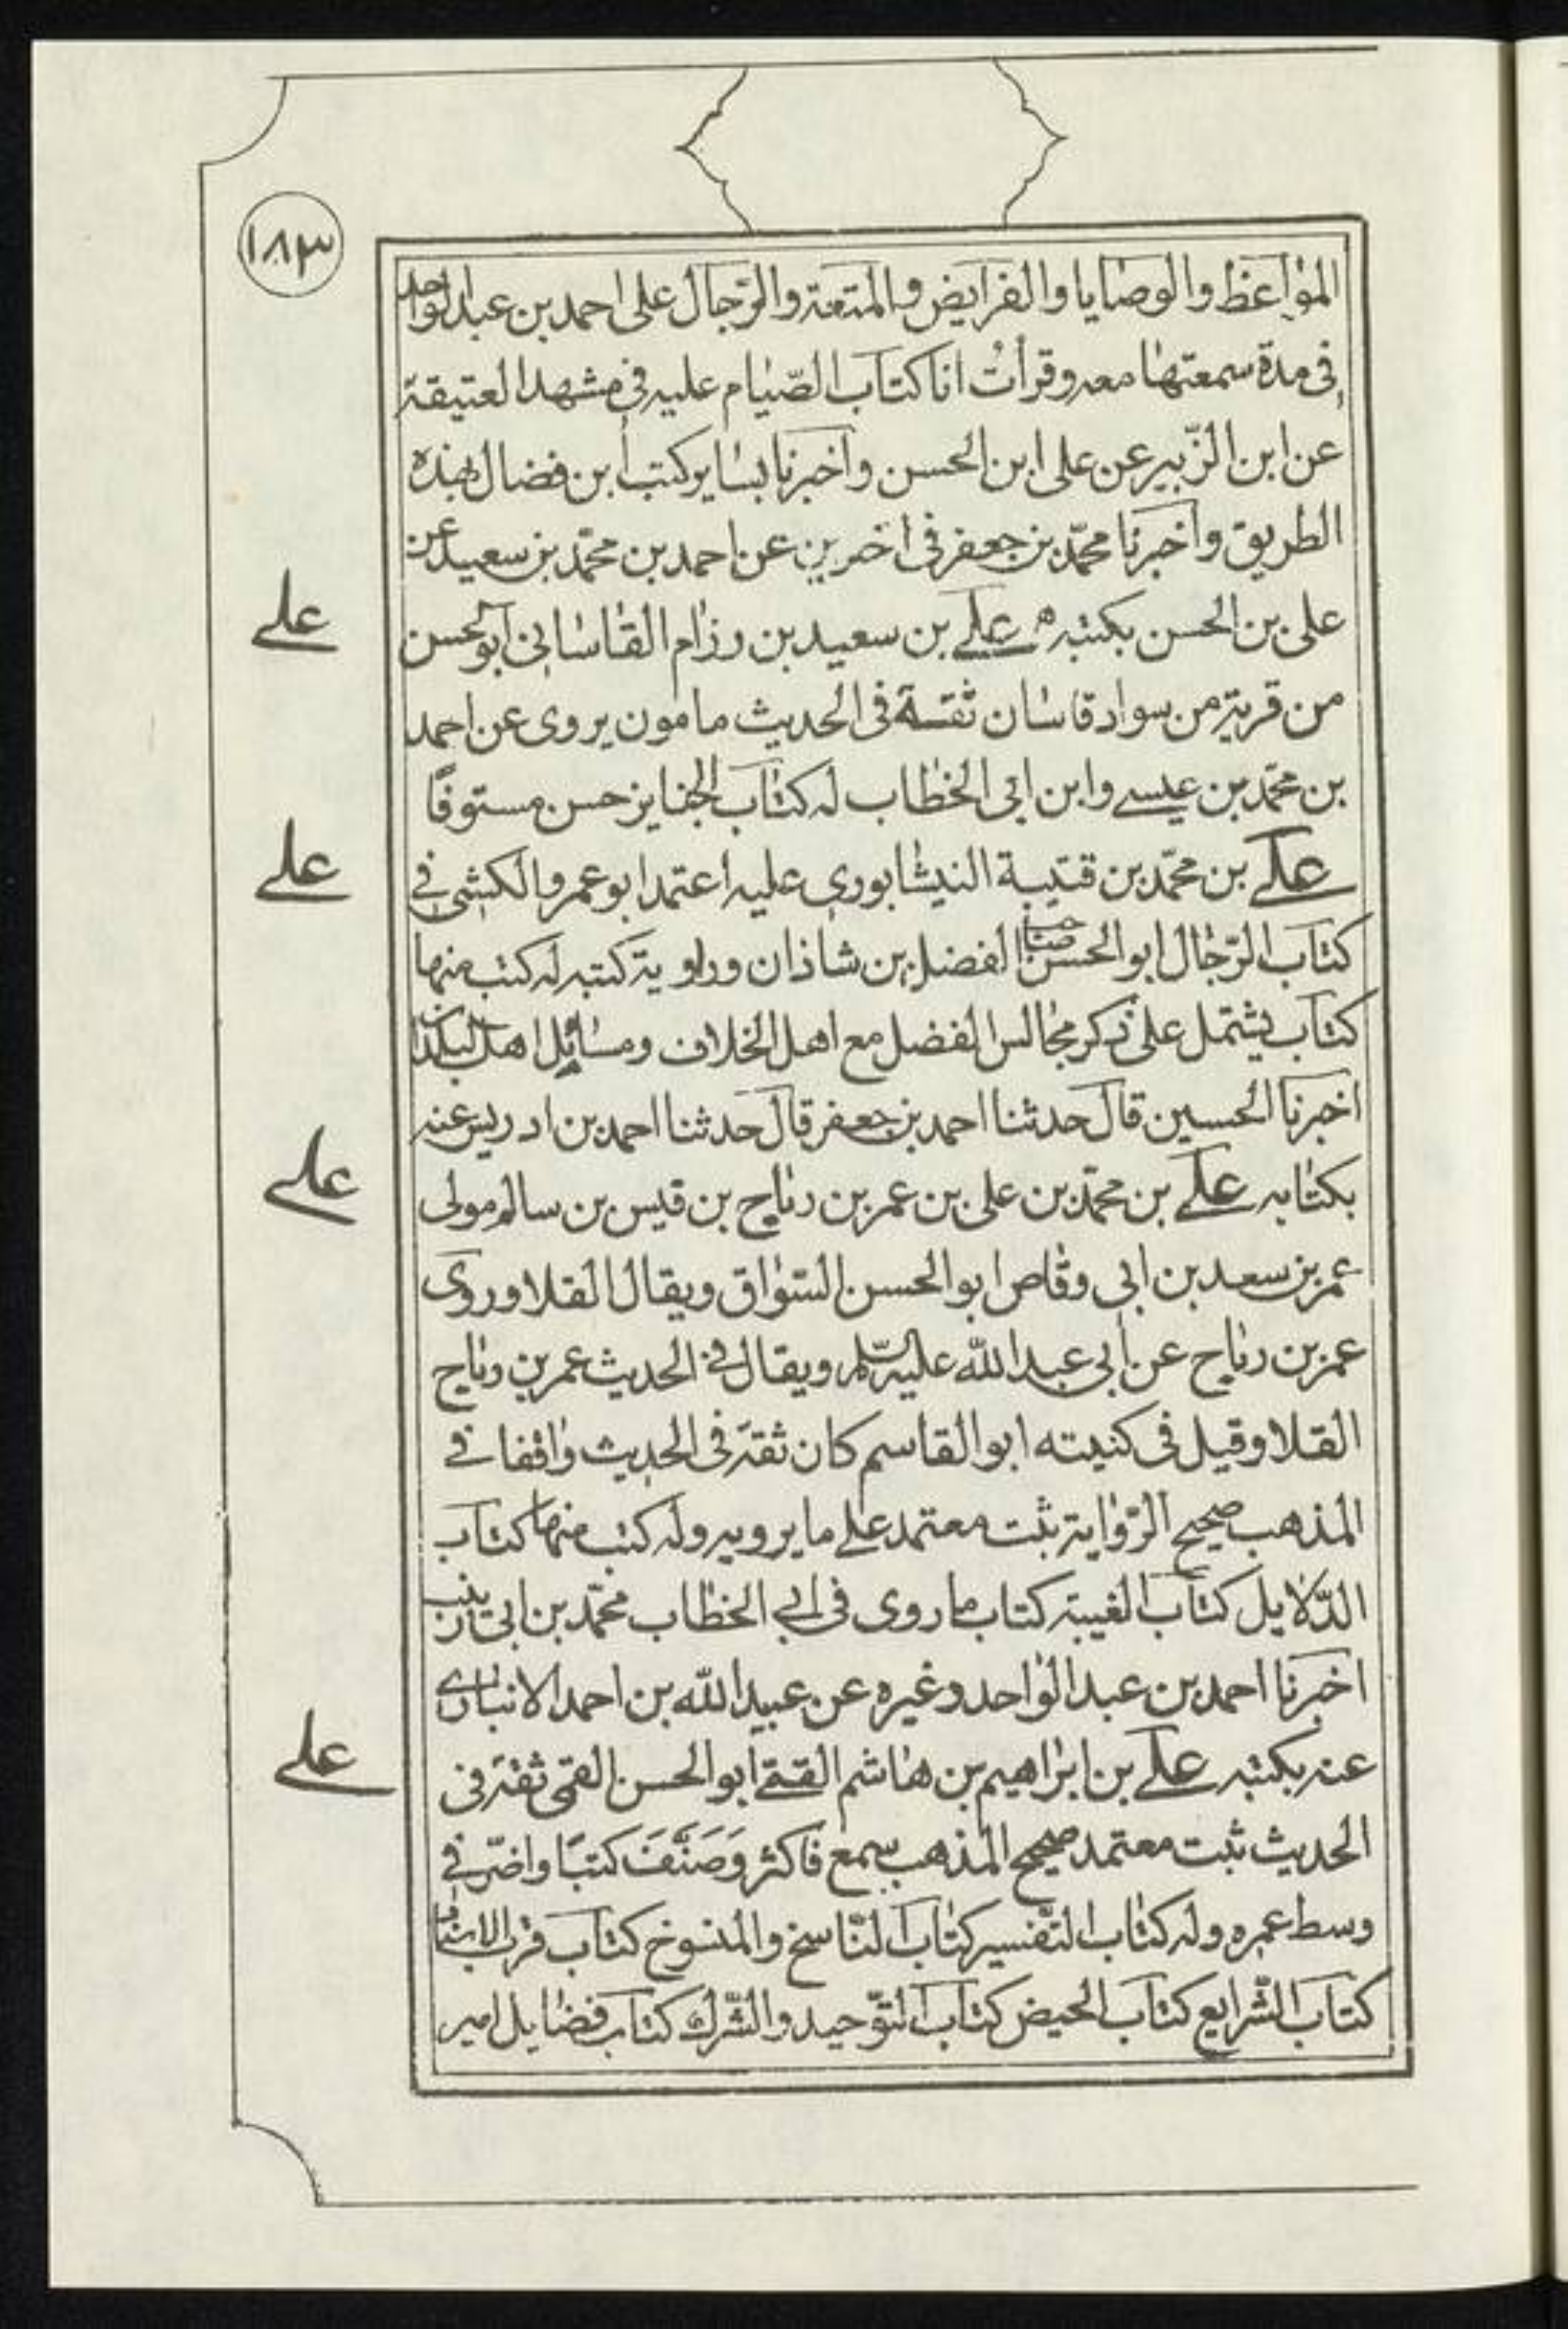 ١٨٣
المواعظ والوصايا والفرايض والمتعة والرّجال على احمد بن عبد الواحد
فى مدة سمعتها معه وقرأتُ انا كتاب الصّيام عليه فى مشهد العتيقة
عن ابن الزّبير عن على ابن الحسن واخبرنا بساير كتب ابن فضال بهذه
الطريق واخبرنا محمّد بن جعفر فى اخرين عن احمد بن محمّد بن سعيد عن
على بن الحسن بكتبه علے بن سعيد بن رزام القاسانى ابو الحسن
علے
من قرية من سواد قاسان ثقة فى الحديث مامون يروى عن احمد
بن محمّد بن عيسے وابن ابى الخطاب له كتاب الجنايز حسن مستوفًا
علے بن محمّد بن قتيبة النيشابورى عليه اعتمد ابو عمرو الكشى فے
علے
كتاب الرّجال ابو الحسن صاحب الفضل بن شاذان وراوية كتبه له كتب منها
كتاب يشتمل على ذكر مجالس الفضل مع اهل الخلاف ومسائل اهل البلدان
اخبرنا الحسين قال حدثنا احمد بن جعفر قال حدثنا احمد بن ادريس عنه
بكتابه علے بن محمّد بن على بن عمر بن رباح بن قيس بن سالم مولى
علے
عمر بن سعد بن ابى وقاص ابو الحسن السّواق ويقال القلا وروى
عمر بن رباح عن ابى عبد الله عليه السّلم ويقال فے الحديث عمر بن رباح
القلا وقيل فى كنيته ابو القاسم كان ثقة فى الحديث واقفا فے
المذهب صحيح الرّواية ثبت معتمد علے ما يرويه وله كتب منها كتاب
الدّلايل كتاب الغيبة كتاب ما روى فى ابے الخطاب محمّد بن ابى زينب
اخبرنا احمد بن عبد الواحد وغيره عن عبيد الله بن احمد الانبارے
عنه بكتبه علے بن ابراهيم بن هاشم القمے ابو الحسن القمى ثقة فى
علے
الحديث ثبت معتمد صحيح المذهب سمع فاكثر وَصَنَّفَ كتبًا واضرّ فے
وسط عمره وله كتاب التفسير كتاب النّاسخ والمنسوخ كتاب قرب الاسناد
كتاب الشّرايع كتاب الحيض كتاب التوّحيد والشّرك كتاب فضايل امير